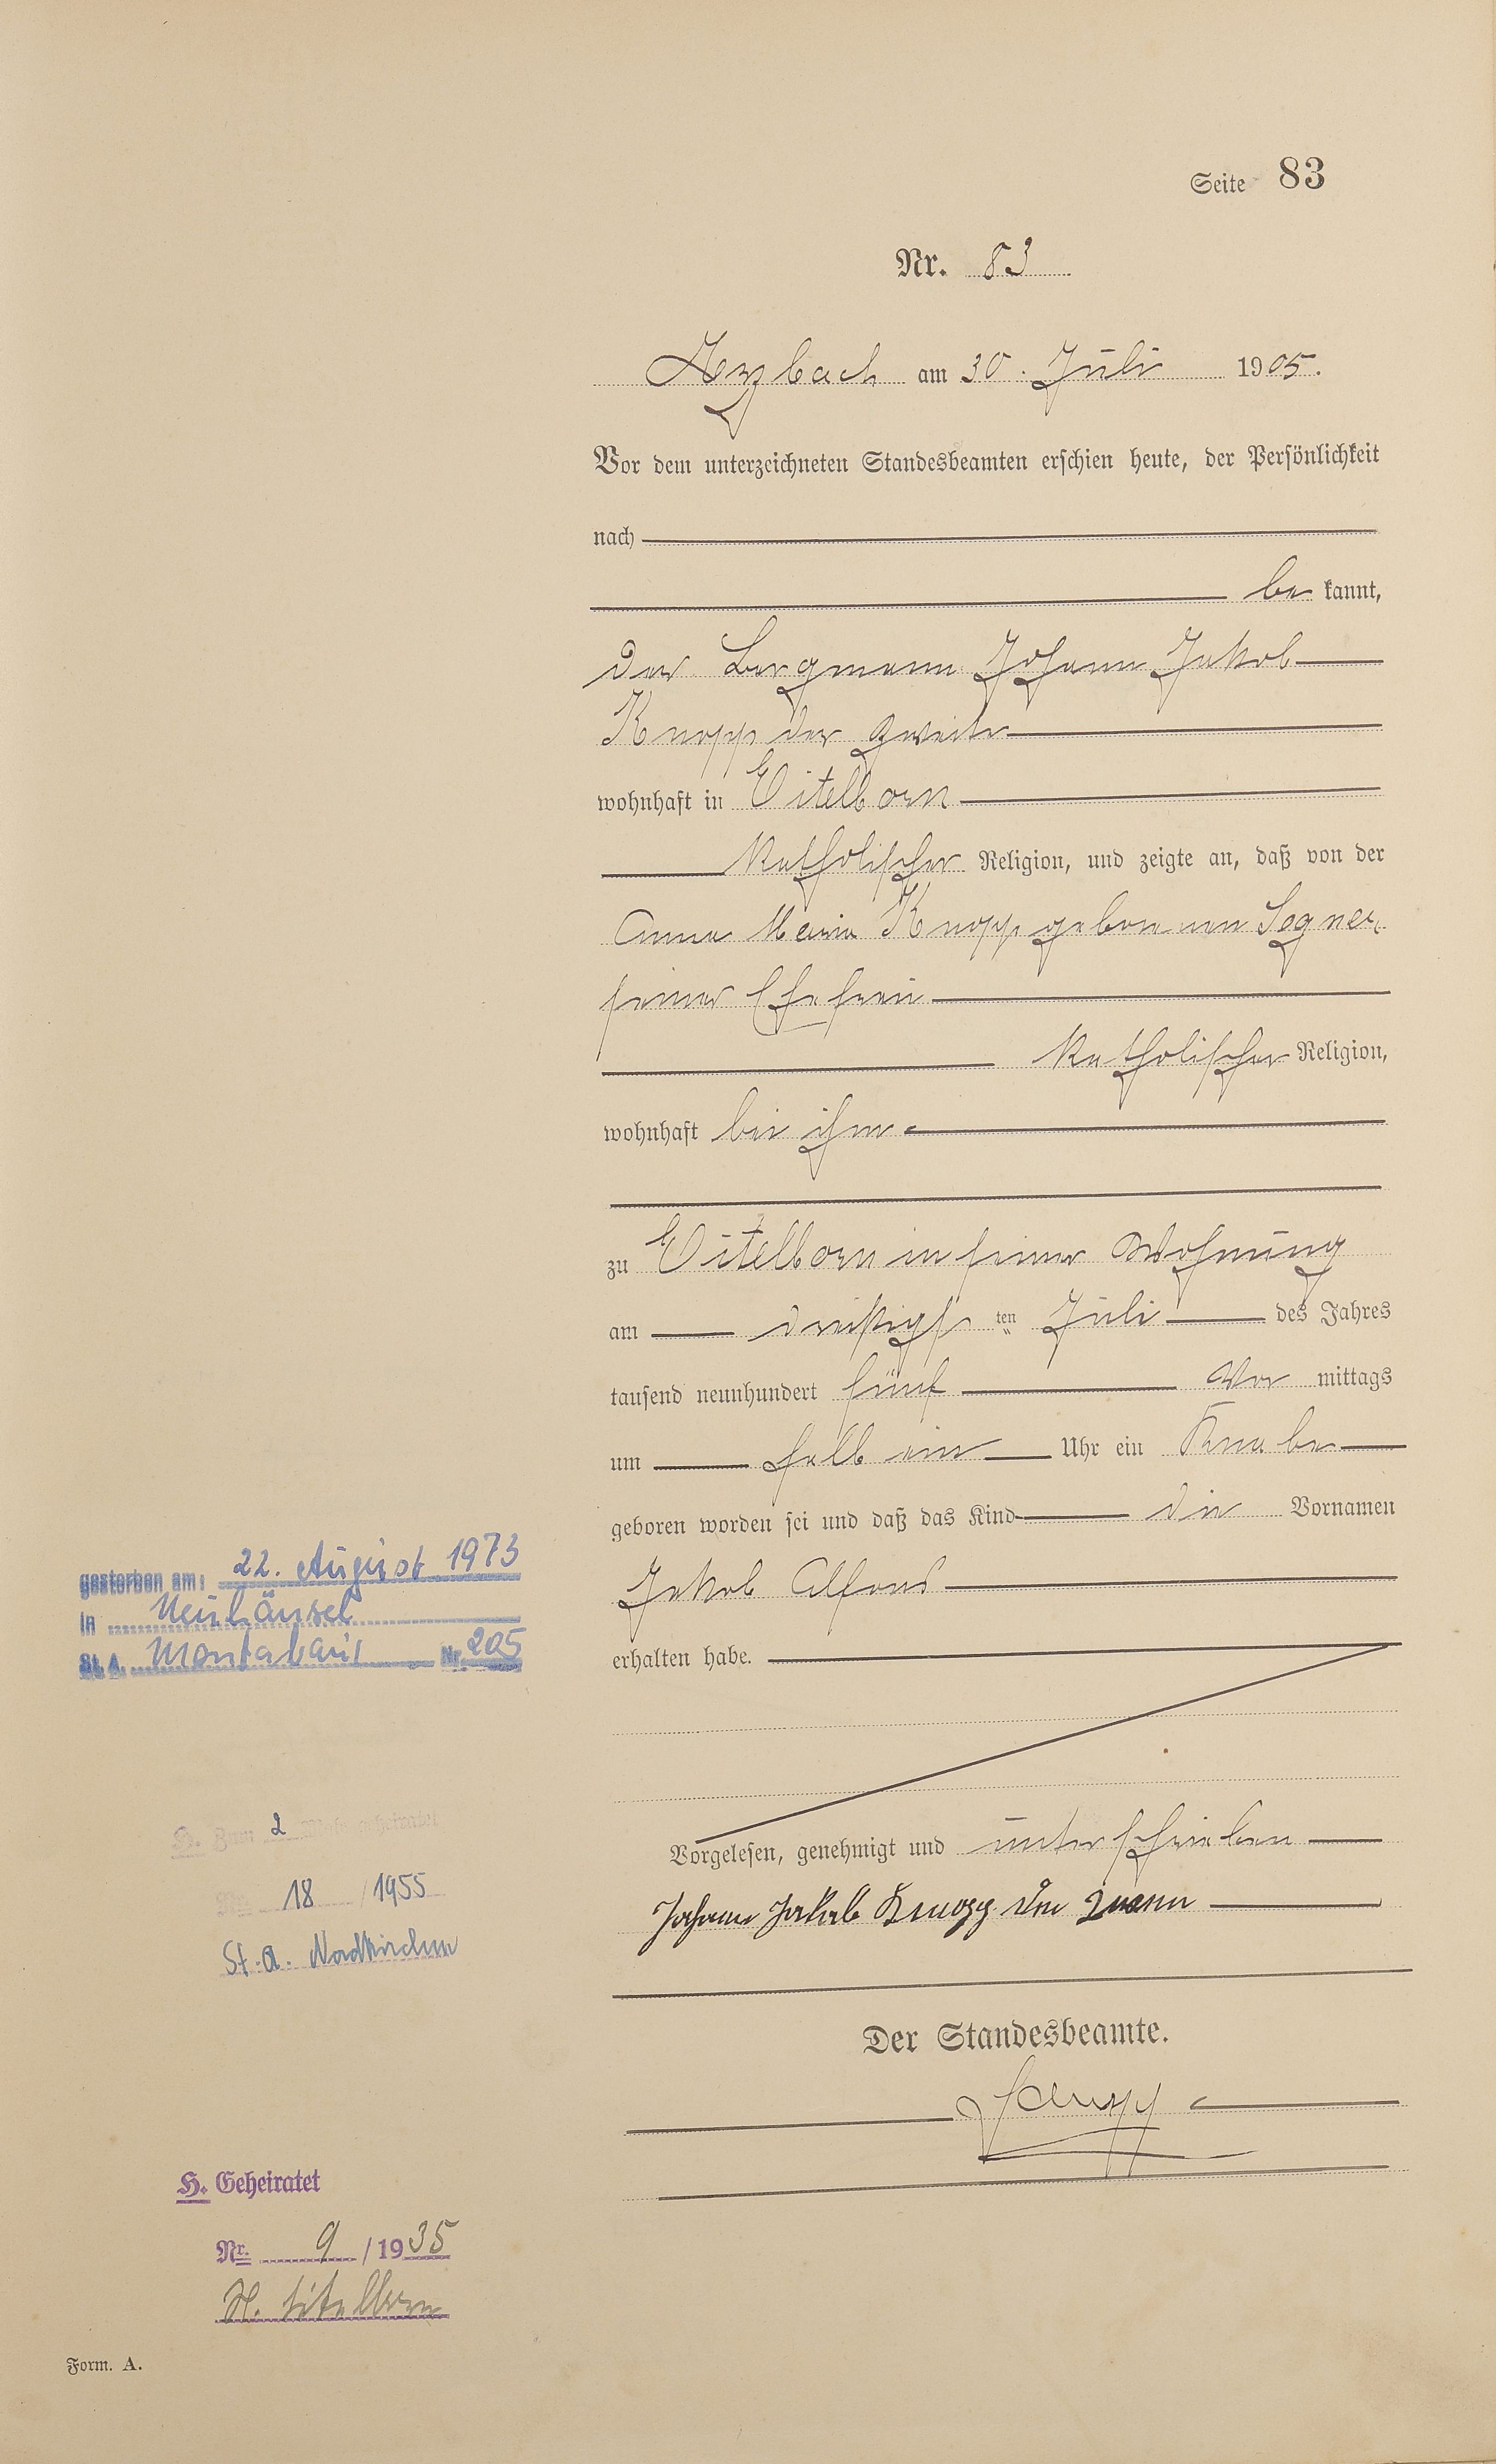 Seite 83
Nr. 83
Arzbach am 30. Juli 1905.
Vor dem unterzeichneten Standesbeamten erschien heute, der Persönlichkeit
nach
be kannt,
der Bergmann Johann Jakob
Knopp der Zweite
wohnhaft in Eitelborn
katholischer Religion, und zeigte an, daß von der
Anna Maria Knopp geborenen
seiner Ehefrau
katholischer Religion,
wohnhaft bei ihm
zu Eitelborn in seiner Wohnung
am dreißigsten Juli des Jahres
tausend neunhundert fünf Vor mittags
um halb ein Uhr ein Knabe
geboren worden sei und daß das Kind die Vornamen
Jakob Alfons
erhalten habe.
Vorgelesen, genehmigt und unterschrieben
Johann Jakob Knopp der
Der Standesbeamte.
gestorben am: 22. August 1973
in Neuhäusel
St. A. Montabaur Nr. 205
H. Zum 2 Male geheiratet
Nr. 18 / 1955
St. A. Nordkirchen
H. Geheiratet
Nr. 9 / 1935
St. Eitelborn
Form. A.